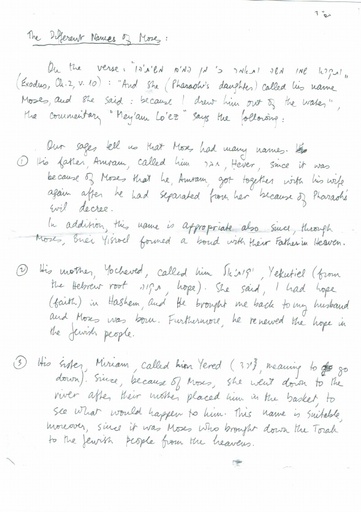 The Different Names of Moses:
On the verse: "ותקרא שמו משה ותאמר כי מן המים משיתהו",
(Exodus, Ch. 2, v. 10): "And she (Pharaoh's daughter) called his name
Moses, and she said: because I drew him out of the water",
the commentary "Me'am Lo'ez" says the following:
Our sages tell us that Moses had many names.
① His father, Amram, called him חבר, Hever, since it was
because of Moses that he, Amram, got together with his wife
again after he had separated from her because of Pharaoh's
evil decree.
In addition, this name is appropriate also since, through
Moses, Bnei Yisroel formed a bond with their Father in Heaven.
② His mother, Yocheved, called him יקותיאל, Yekutiel (from
the Hebrew root תקוה, hope). She said, I had hope
(faith) in Hashem, and He brought me back to my husband
and Moses was born. Furthermore, he renewed the hope in
the Jewish people.
③ His sister, Miriam, called him Yered (ירד, meaning to go
down). Since, because of Moses, she went down to the
river after their mother placed him in the basket, to
see what would happen to him. This name is suitable,
moreover, since it was Moses who brought down the Torah
to the Jewish people from the heavens.